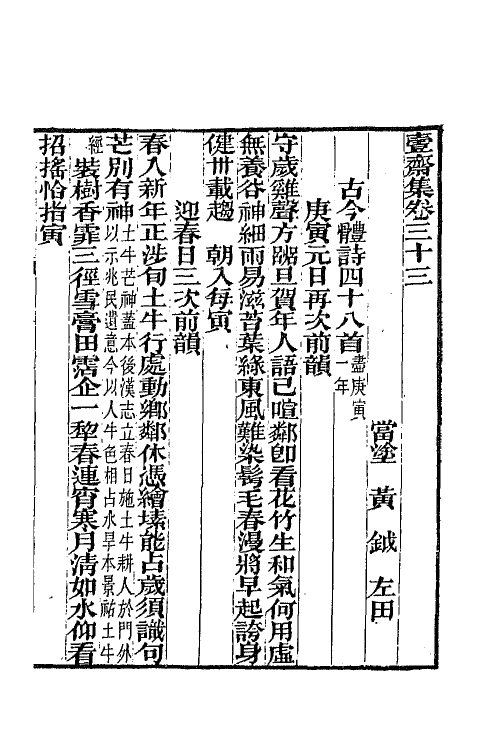 壹齋集卷三十三
當塗 黃 鉞 左田
古今體詩四十八首盡庚寅一年
庚寅元日再次前韻
守歲雞聲方隔旦賀年人語已喧鄰卽看花竹生和氣何用虛
無養谷神細雨易滋苔葉綠東風難染髩毛春漫將早起誇身
健卅載趨 朝入每寅
迎春日三次前韻
春入新年正涉旬土牛行處動鄉鄰休憑繪塐能占歲須識句
芒別有神土牛芒神蓋本後漢志立春日施土牛耕人於門外以示兆民遺意今以人牛色相占水旱本景祐土牛
經裝樹香霏三徑雪膏田霑企一犂春連宵寒月淸如水仰看
招搖恰指寅